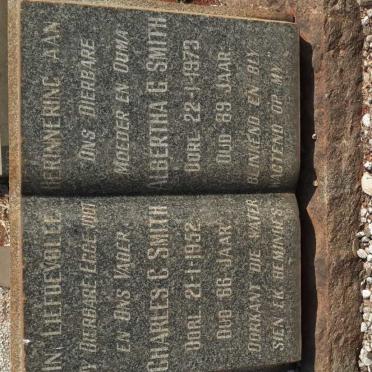 IN LIEFDEVOLLE
MY DIERBARE EGGENOOT
EN ONS VADER
CHARLES C. SMITH
OORL. 21-1-1952
OUD 66 JAAR
OORKANT DIE WATER
SIEN EK BEMINDES
HERINNERING AAN
ONS DIERBARE
MOEDER EN OUMA
ALBERTHA G. SMITH
OORL. 22-1-1973
OUD 89 JAAR
BLINKEND EN BLY
WAGTEND OP MY